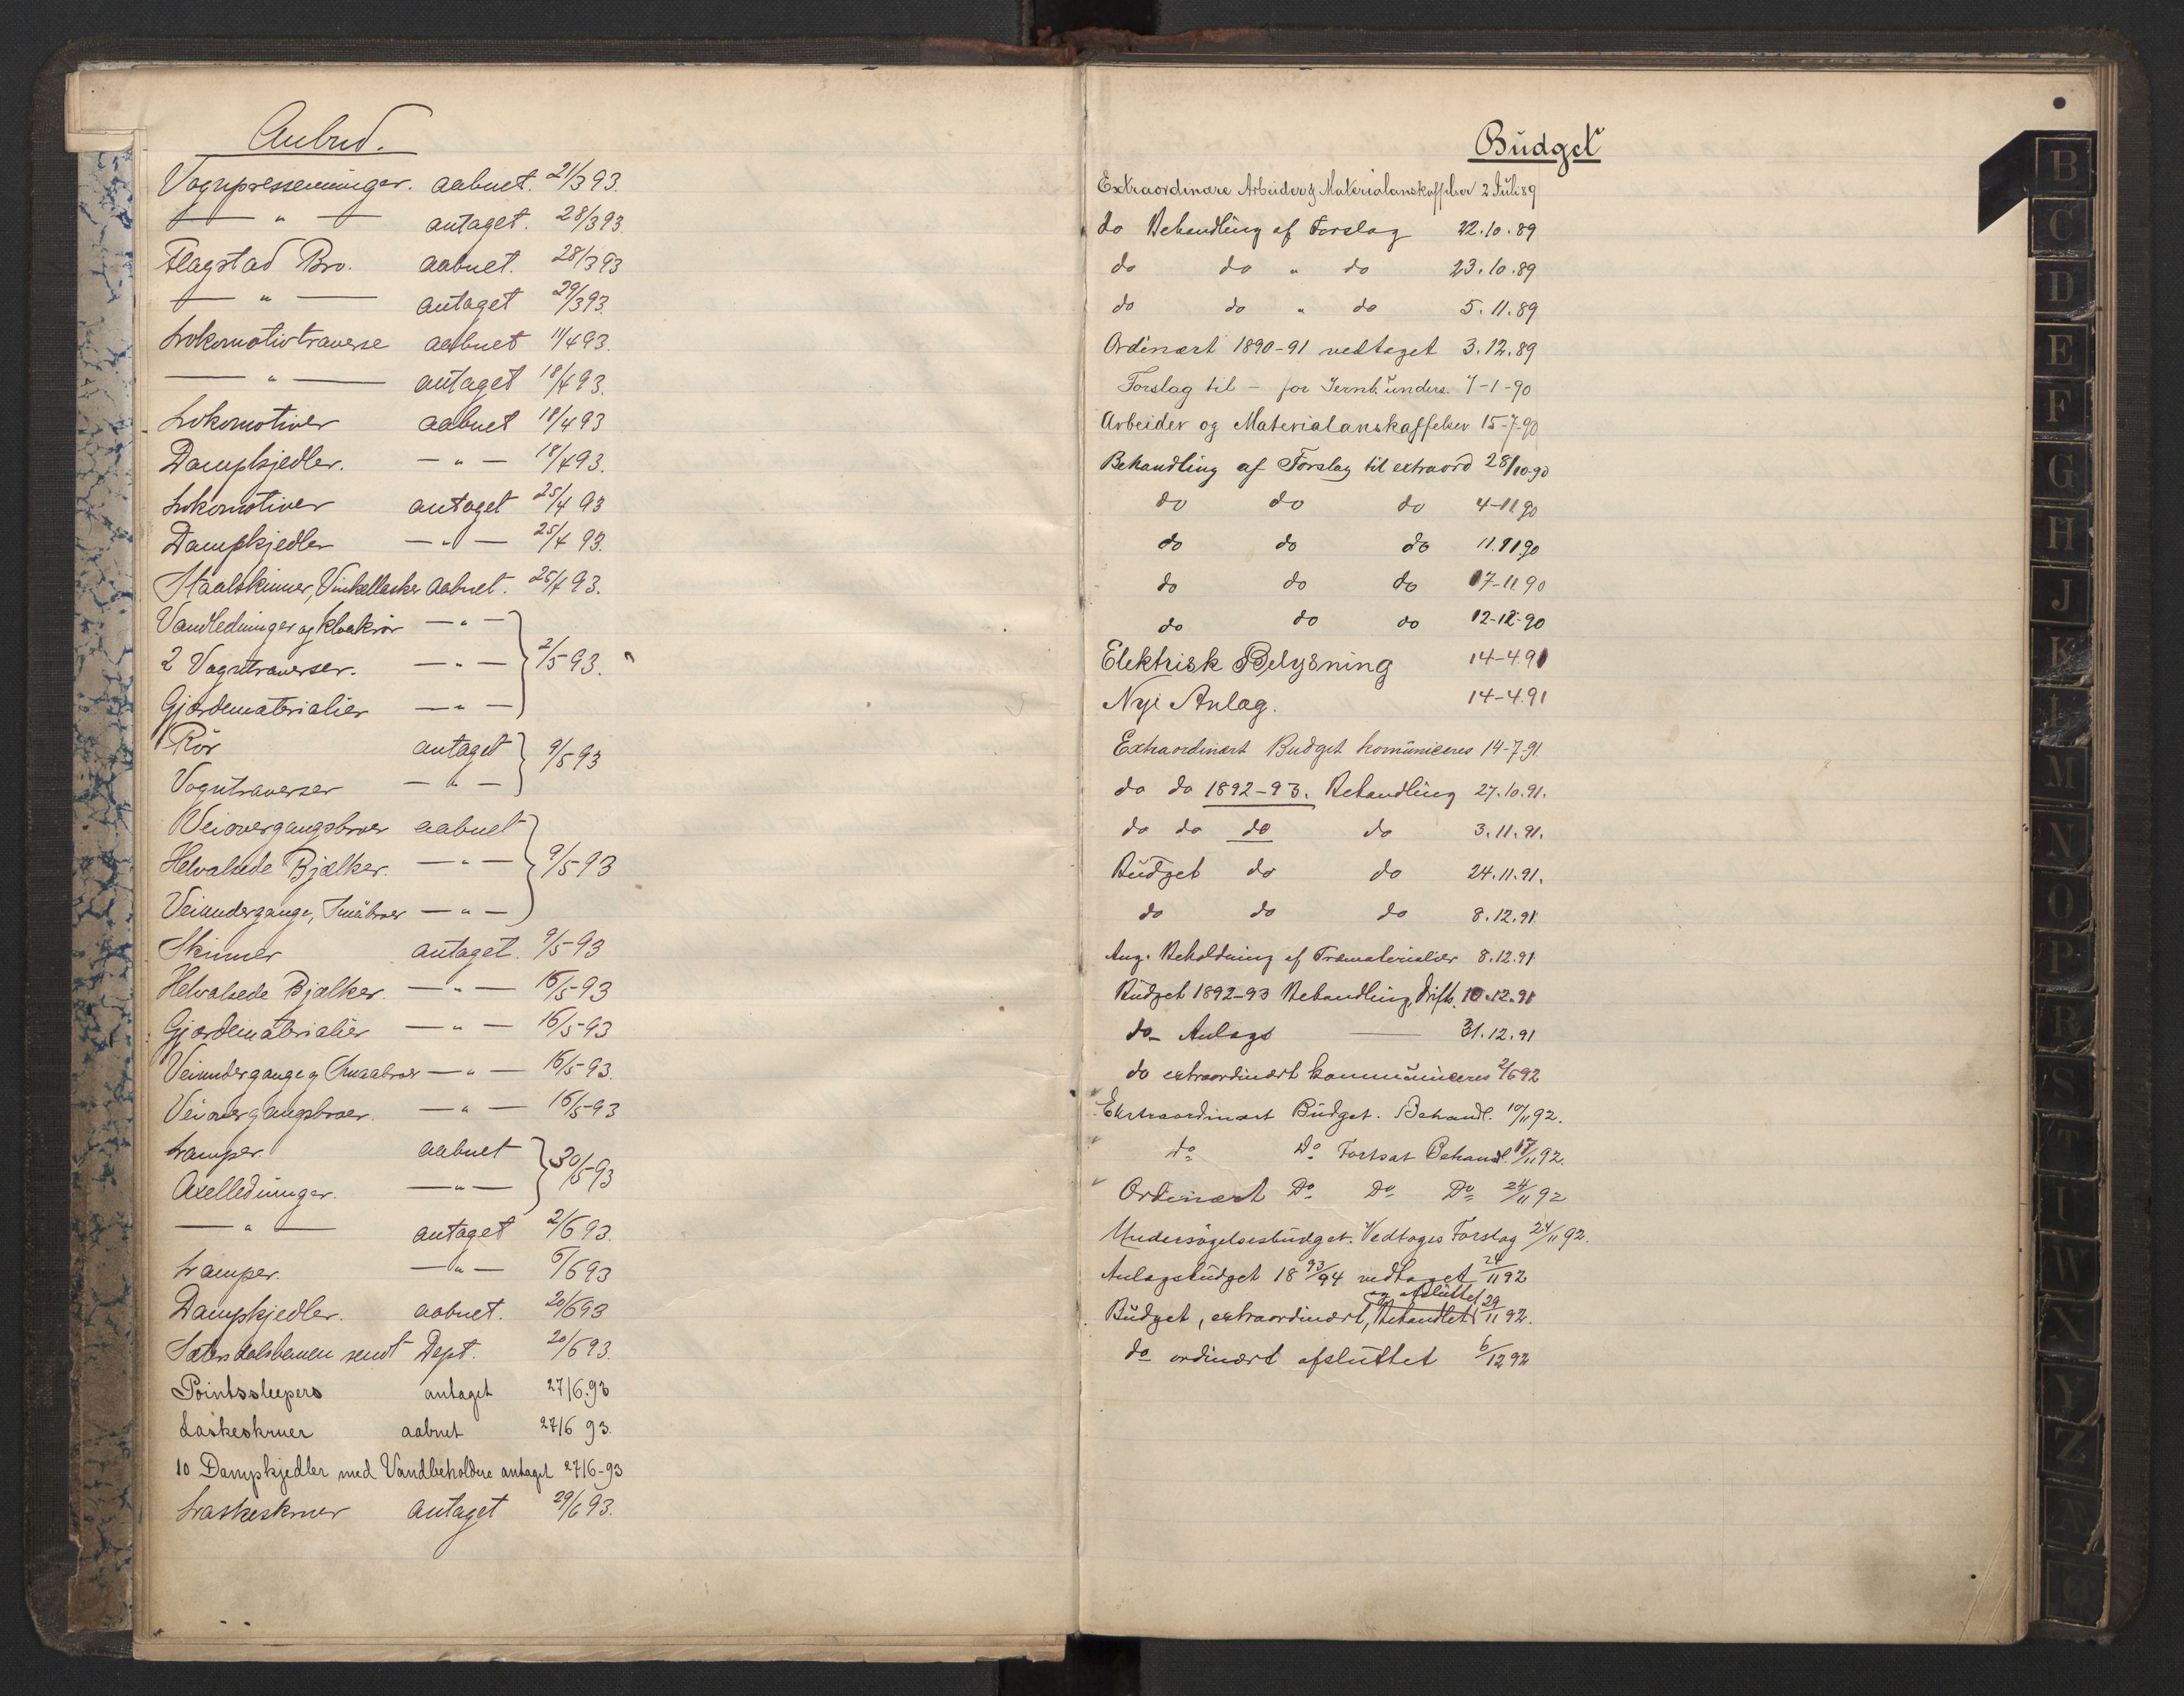 Anbud.
Vognpressenninger. aabnet. 21/3 93.
— " — antaget. 28/3 93.
Flagstad Bro. aabnet. 28/3 93
— " — antaget 29/3 93.
Lokomotivtraverse aabnet 11/4 93.
— " — antaget 18/4 93.
Lokomotiver aabnet 18/4 93
Dampkjedler. — " — 18/4 93.
Lokomotiver antaget 25/4 93
Dampkjedler — " — 25/4 93.
Staalskinner, Vinkellasker aabnet. 25/4 93.
Vandledninger og Kloakrör — " —
2 Vogntraverser. — " — 2/5 93.
Gjærdematerialier — " —
Rör antaget 9/5 93
Vogntraverser — " —
Veiovergangsbroer aabnet
Helvalsede Bjælker. — " — 9/5 93
Veiundergange, Småbroer — " —
Skinner antaget. 9/5 93
Helvalsede Bjælker. — " — 16/5 93
Gjærdematerialier — " — 16/5 93
Veiundergange og Smaabroer — " — 16/5 93.
Veiovergangsbroer. — " — 16/5 93
Lamper. aabnet 30/5 93
Axelledninger. — " —
— " — antaget 2/6 93.
Lamper. — " — 6/6 93
Dampkjedler. aabnet. 20/6 93
Sætersdalsbanen sendt Dept. 20/6 93.
Pointssleepers antaget 27/6.93
Laskeskruer aabnet 27/6 93.
10 Dampkjedler med Vandbeholdere antaget 27/6-93
Laskeskruer antaget 29/6 93.
Budget
Extraordinære Arbeider & Materialanskaffelser 2 Juli 89
do Behandling af Forslag 22.10.89
do do " do 23.10.89
do do " do 5.11.89
Ordinært 1890-91 vedtaget 3.12.89
Forslag til – for Jernb. unders. 7-1-90
Arbeider og Materialanskaffelser 15-7-90
Behandling af Forslag til extraord 28/10-90
do do do 4-11 90
do do do 11.11.90
do do do 17-11 90
do do do 12-12-90
Elektrisk Belysning 14-4.91
Nye Anlæg. 14-4.91
Extraordinært Budget komuniceres 14-7-91
do do 1892-93. Behandling 27.10.91.
do do do do 3.11.91.
Budget do do 24.11.91.
do do do 8.12.91.
Ang. Beholdning af Træmaterialier 8.12.91
Budget 1892-93 Behandling, Drifts. 10.12.91
do Anlægs — 31.12.91
do extraordinært kommuniceres 2/6 92
Ekstraordinært Budget. Behandl. 10/11 92.
do Do Fortsat Behandl. 17/11 92.
Ordinært Do Do Do 24/11 92
Undersögelsesbudget. Vedtages Forslag 24/11 92.
Anlægsbudget 18 93/94 vedtaget 24/11 92
og afsluttet
Budget, extraordinært, Behandlet 29/11 92.
do ordinært afsluttet 6/12 92
B
C
D
E
F
G
H
J
K
L
M
N
O
P
R
S
T
U
W
X
Y
Z
Æ
Ø